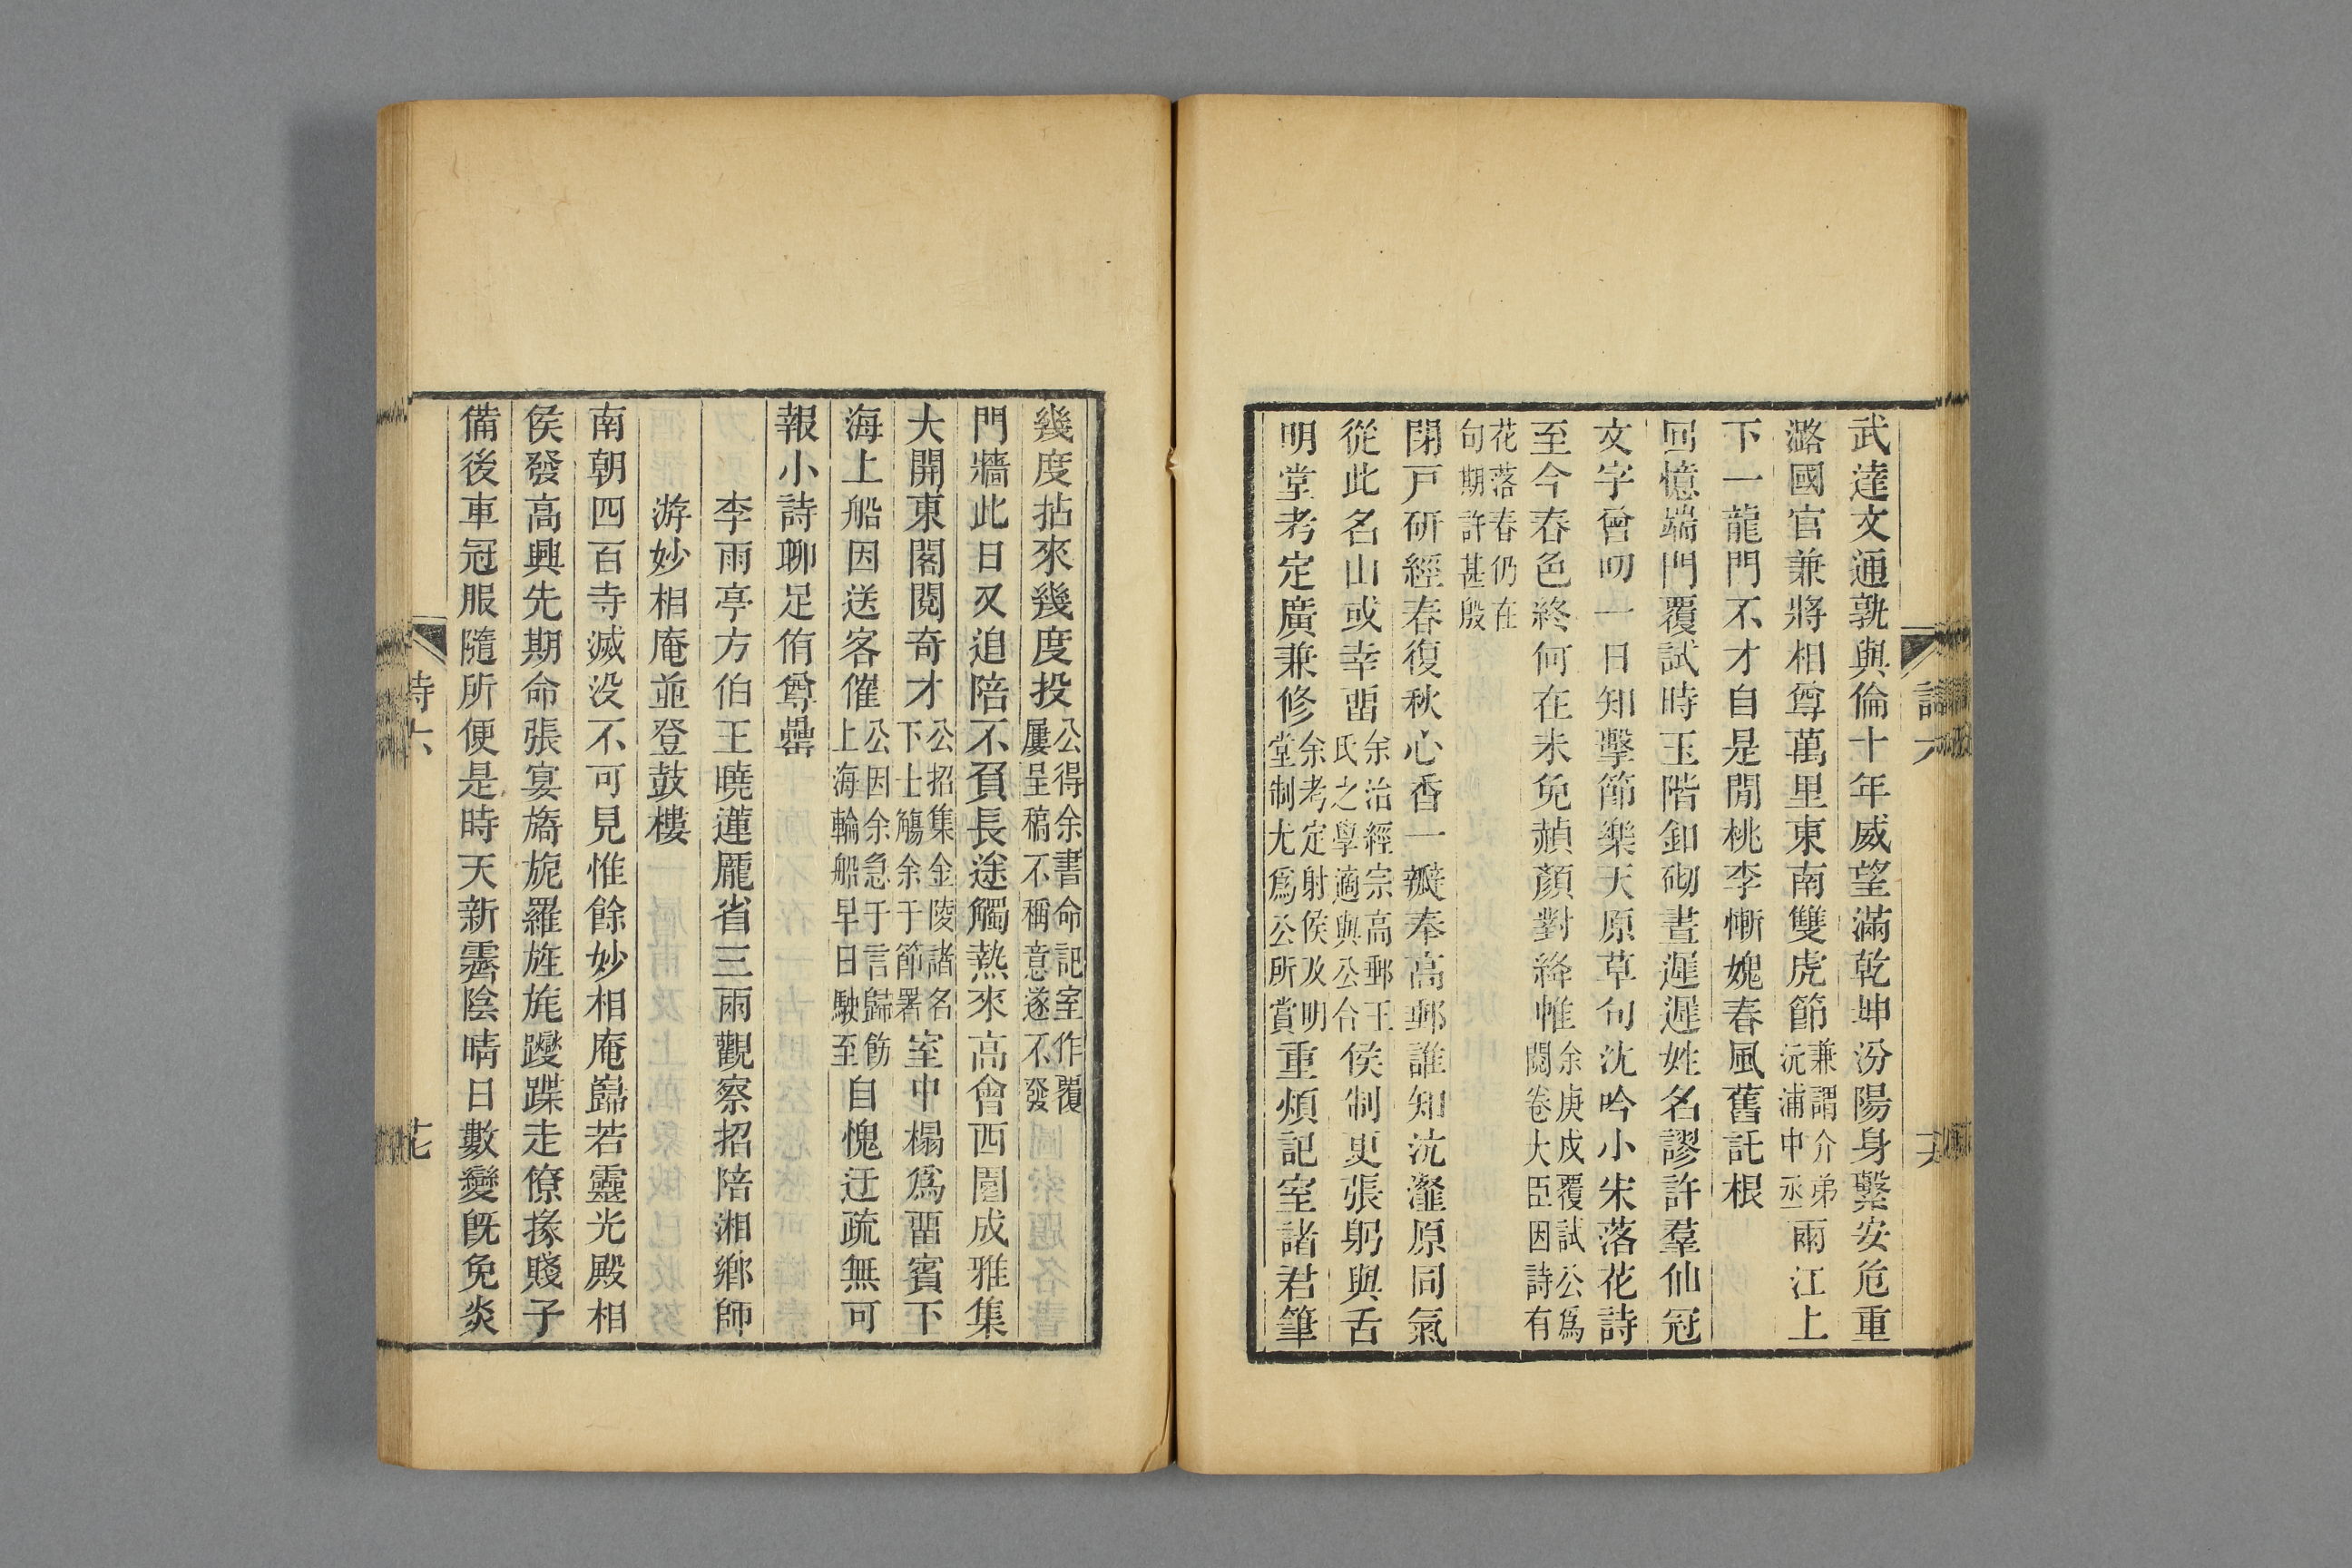 武達文通孰與倫十年威望滿乾坤汾陽身繫安危重
潞國官兼將相尊萬里東南雙虎節兼謂介弟沅浦中丞兩江上
下一龍門不才自是閒桃李慚媿春風舊託根
回憶端門覆試時玉階釦砌晝遲遲姓名謬許羣仙冠
文字曾叨一日知擊節樂天原草句沈吟小宋落花詩
至今春色終何在未免赬顏對絳帷余庚戌覆試公爲閱卷大臣因詩有
花落春仍在句期許甚殷
閉戸研經春復秋心香一瓣奉高郵誰知沆瀣原同氣
從此名山或幸畱余治經宗高郵王氏之學適與公合侯制更張躬與舌
明堂考定廣兼修余考定射侯及明堂制尤爲公所賞重煩記室諸君筆
幾度拈來幾度投公得余書命記室作覆屢呈稿不稱意遂不發
門牆此日又追陪不負長途觸熱來高會西園成雅集
大開東閣閱奇才公招集金陵諸名下士觴余于節署室中榻爲畱賓下
海上船因送客催公因余急于言歸飭上海輪船早日駛至自愧迂疏無可
報小詩聊足侑尊罍
李雨亭方伯王曉蓮龎省三兩觀察招陪湘鄉師
游妙相庵並登鼓樓
南朝四百寺滅没不可見惟餘妙相庵巋若靈光殿相
侯發高興先期命張宴旖旎羅旌旄躞蹀走僚掾賤子
備後車冠服隨所便是時天新霽陰晴日數變旣免炎
詩六